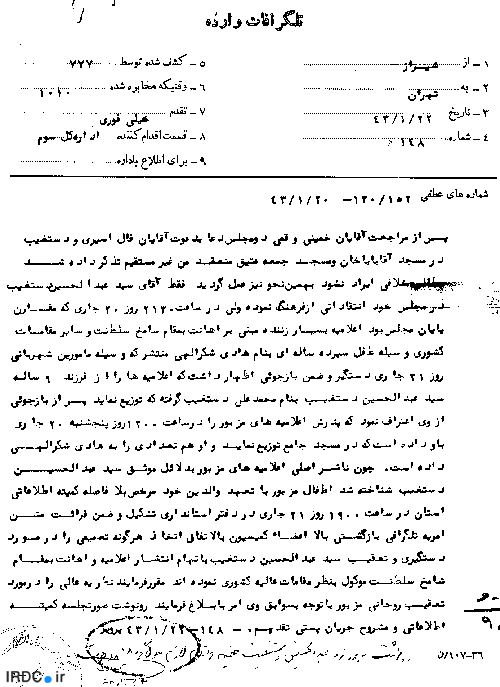 تلگرافات وارده
۱ - از شیراز
۲ - به تهران
۳ - تاریخ ۴۳/۱/۲۲
۴ - شماره ۱۴۸
۵ - کشف شده توسط ۷۷۷
۶ - وقتیکه مخابره شده ۱۰۱۰
۷ - تقدم خیلی فوری
۸ - قسمت اقدام کننده اداره کل سوم
۹ - برای اطلاع باداره
شماره های عطفی ۱۲۰/۱۵۲ - ۴۳/۱/۲۰
پس از مراجعت آقایان خمینی و قمی دو مجلس دعا بدعوت آقایان فال اسیری و دستغیب
در مسجد آقاباباخان و مسجد جمعه عتیق منعقد من غیر مستقیم تذکر داده شد
خلافی ایراد نشود بهمین نحو نیز عمل گردید فقط آقای سید عبدالحسین دستغیب
در مجلس خود انتقاداتی از فرهنگ نموده ولی در ساعت ۲۱۳۰ روز ۲۰ جاری که مقارن
پایان مجلس بود اعلامیه بسیار زننده مبنی بر اهانت بمقام شامخ سلطنت و سایر مقامات
کشوری وسیله طفل سیزده ساله ای بنام هادی شکرالهی منتشر که وسیله مامورین شهربانی
روز ۲۱ جاری دستگیر و ضمن بازجوئی اظهار داشت که اعلامیه ها را از فرزند ۹ ساله
سید عبدالحسین دستغیب بنام محمدعلی دستغیب گرفته که توزیع نماید پس از بازجوئی
از وی اعتراف نمود که پدرش اعلامیه های مزبور را در ساعت ۱۲۰۰ روز پنجشنبه ۲۰ جاری
باو داده است که در مسجد جامع توزیع نماید و او هم تعدادی را به هادی شکرالهی
داده است. چون ناشر اصلی اعلامیه های مزبور بدلائل موثق سید عبدالحسین
دستغیب شناخته شد اطفال مزبور با تعهد والدین خود مرخص بلافاصله کمیته اطلاعاتی
استان در ساعت ۱۹۰۰ روز ۲۱ جاری در دفتر استانداری تشکیل و ضمن قرائت متن
امریه تلگرافی بازگشتی بالا اعضاء کمیسیون بالاتفاق اتفاذ هرگونه تصمیمی را در مورد
دستگیری و تعقیب سید عبدالحسین دستغیب باتهام انتشار اعلامیه و اهانت بمقام
شامخ سلطنت موکول بنظر مقامات عالیه کشوری نموده اند مقرر فرمایند نظریه عالی را در مورد
تعقیب روحانی مزبور با توجه بسوابق وی امر بابلاغ فرمایند رونوشت صورتجلسه کمیته
اطلاعاتی و مشروح جریان پستی تقدیم. - ۱۴۸ - ۴۳/۱/۲۲
۵/۱۰۷-۳۶
IRDC.ir